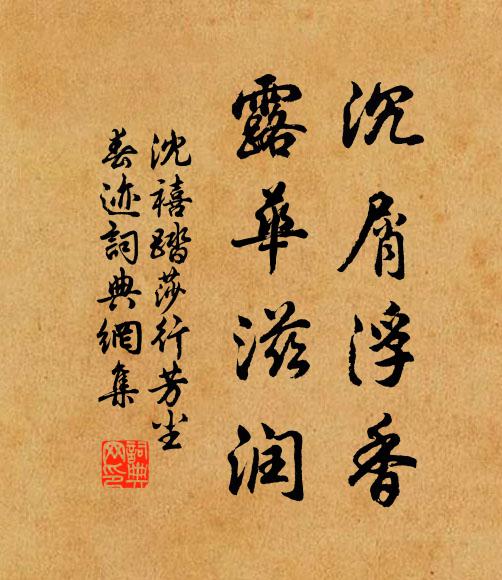 沉屑浮香
露華滋润
沈禧踏莎行芳尘
春迹詞典網集
詞典网印